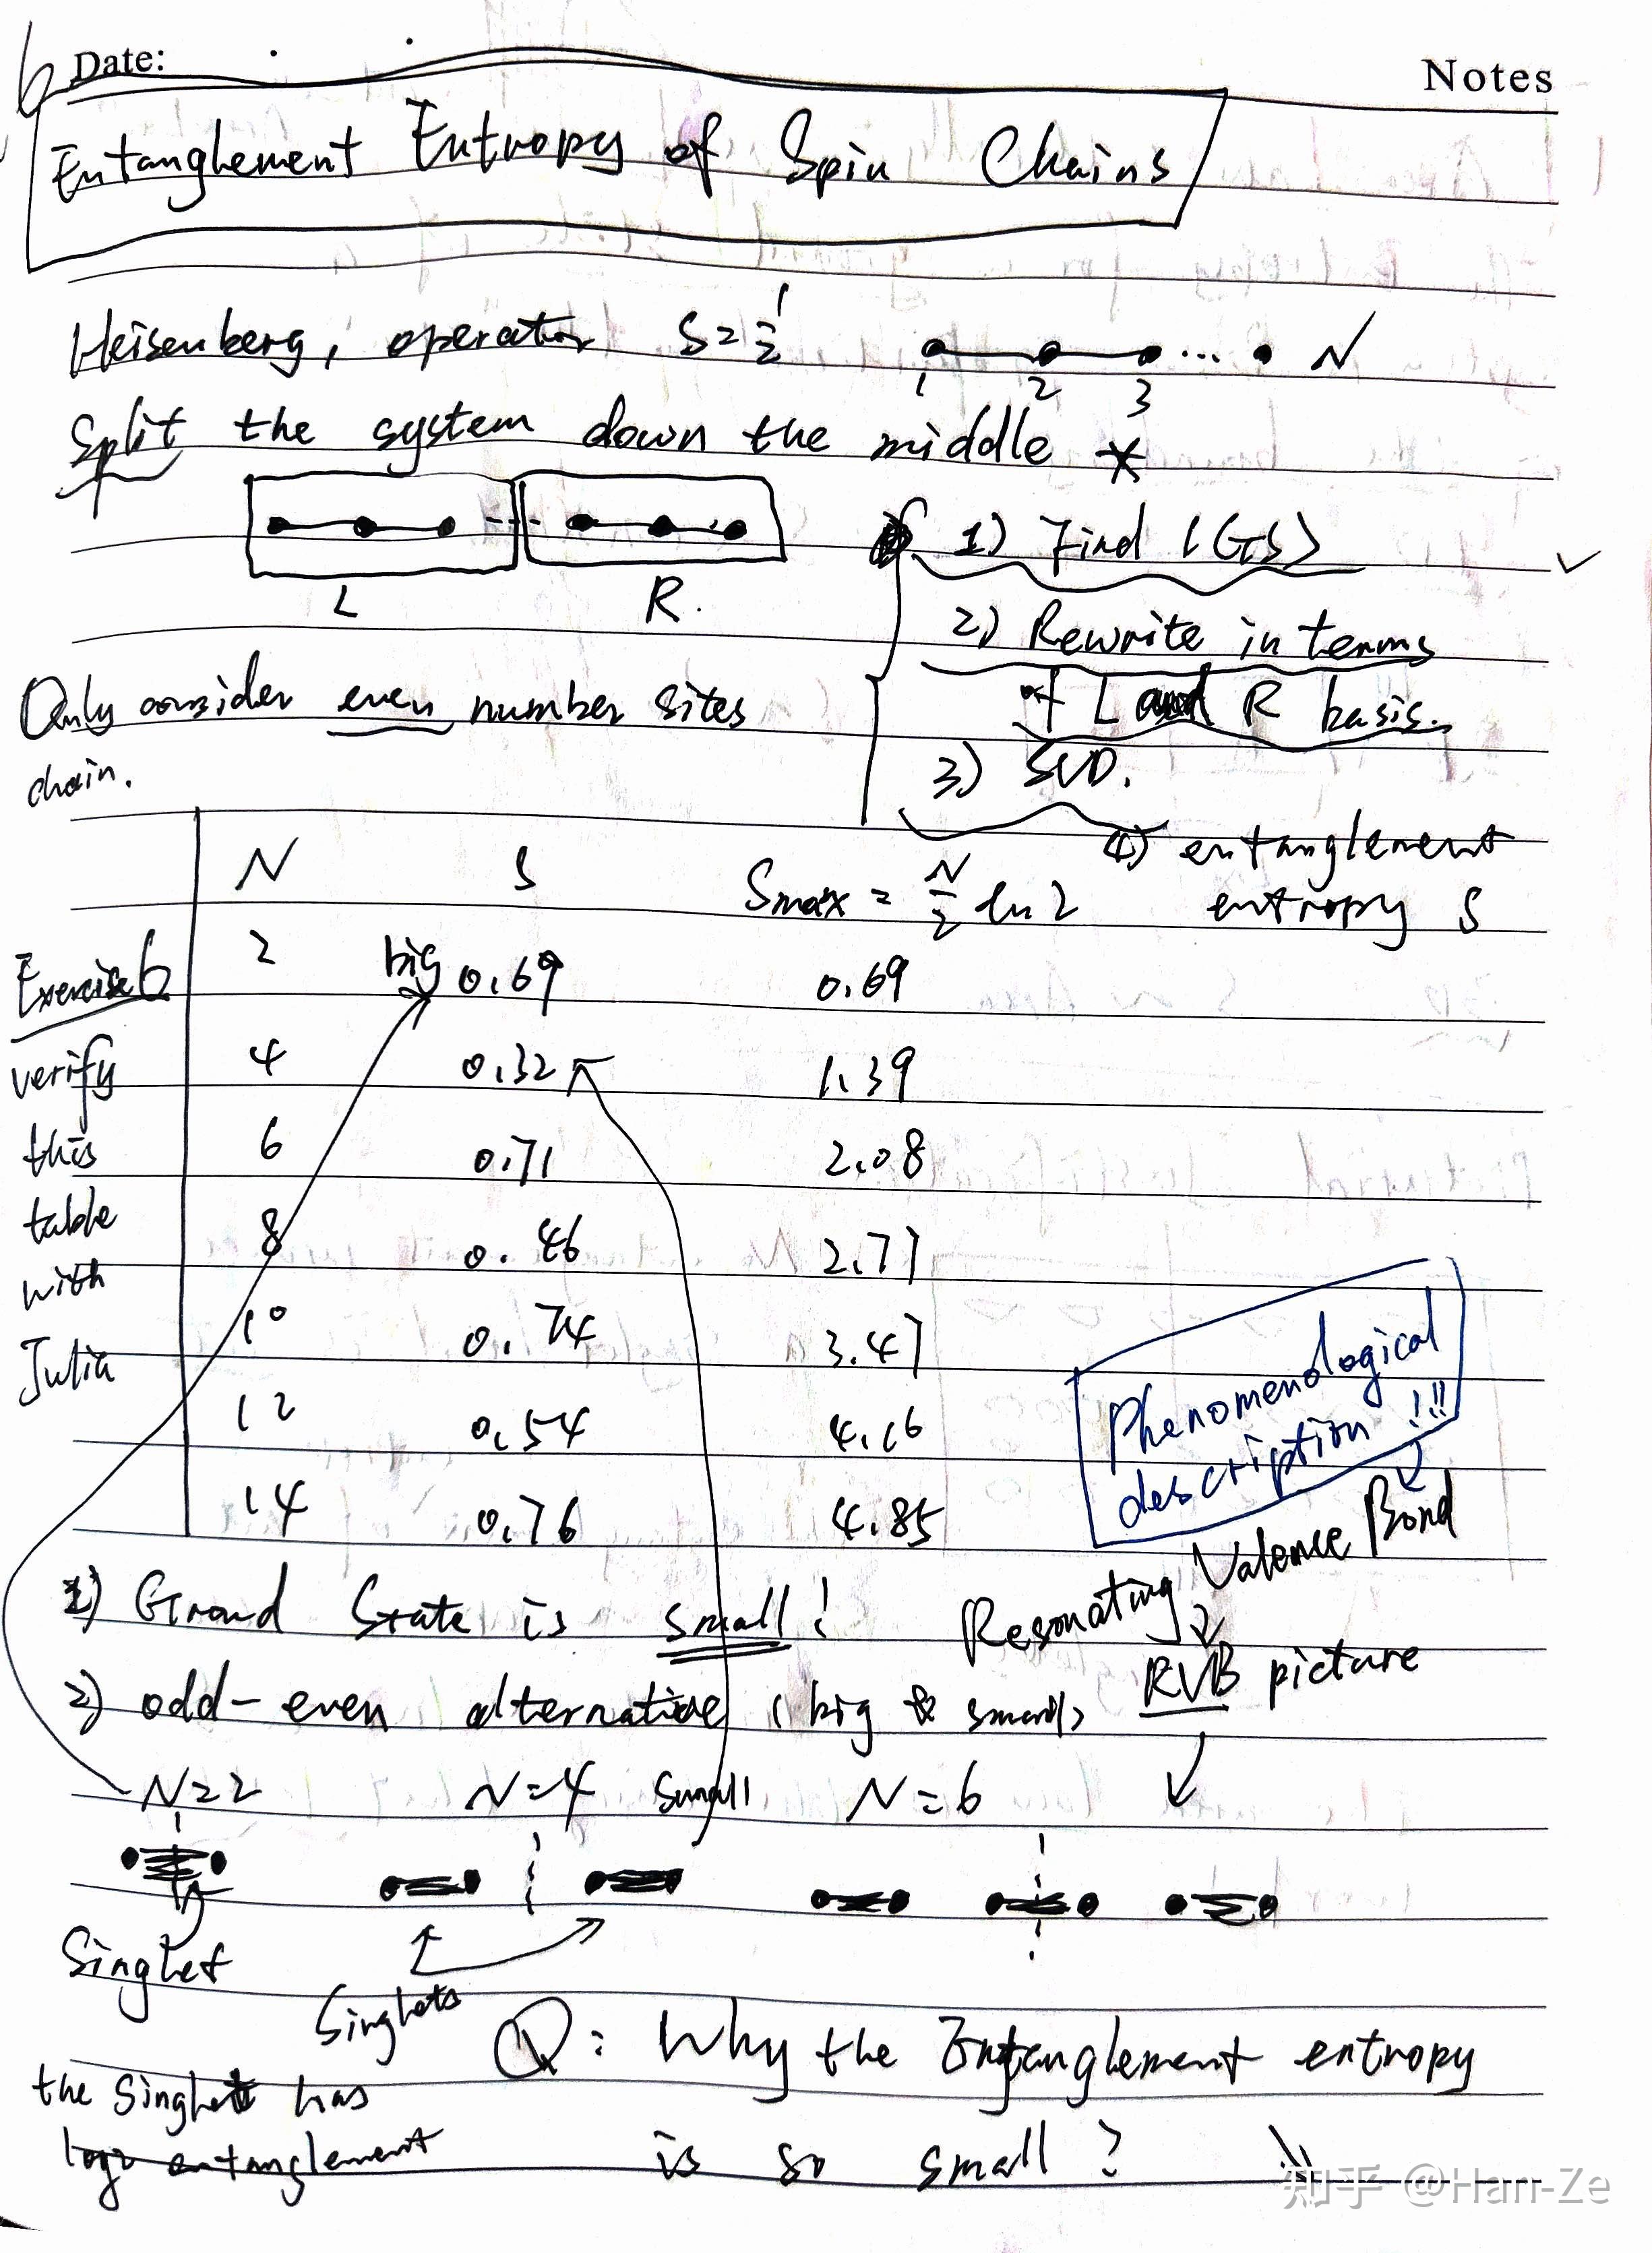 Date:
Notes
6
Entanglement Entropy of Spin Chains
Heisenberg, operator S=1/2
1 2 3 ... N
Split the system down the middle *
L R.
1) Find |GS>
2) Rewrite in terms
of L and R basis.
3) SVD.
4) entanglement
entropy S
Only consider even number sites
chain.
N S Smax = N/2 ln 2
Exercise 6
verify
this
table
with
Julia
2 big 0.69 0.69
4 0.32 1.39
6 0.71 2.08
8 0.46 2.77
10 0.74 3.47
12 0.54 4.16
14 0.76 4.85
Phenomenological
description !!!
Resonating Valence Bond
RVB picture
1) Ground State is small!
2) odd-even alternative (big & small)
N=2 N=4 small N=6
Singlet
Singlets
the Singlet has
log2 entanglement
Q: Why the Entanglement entropy
is so small?
知乎 @Han-Ze